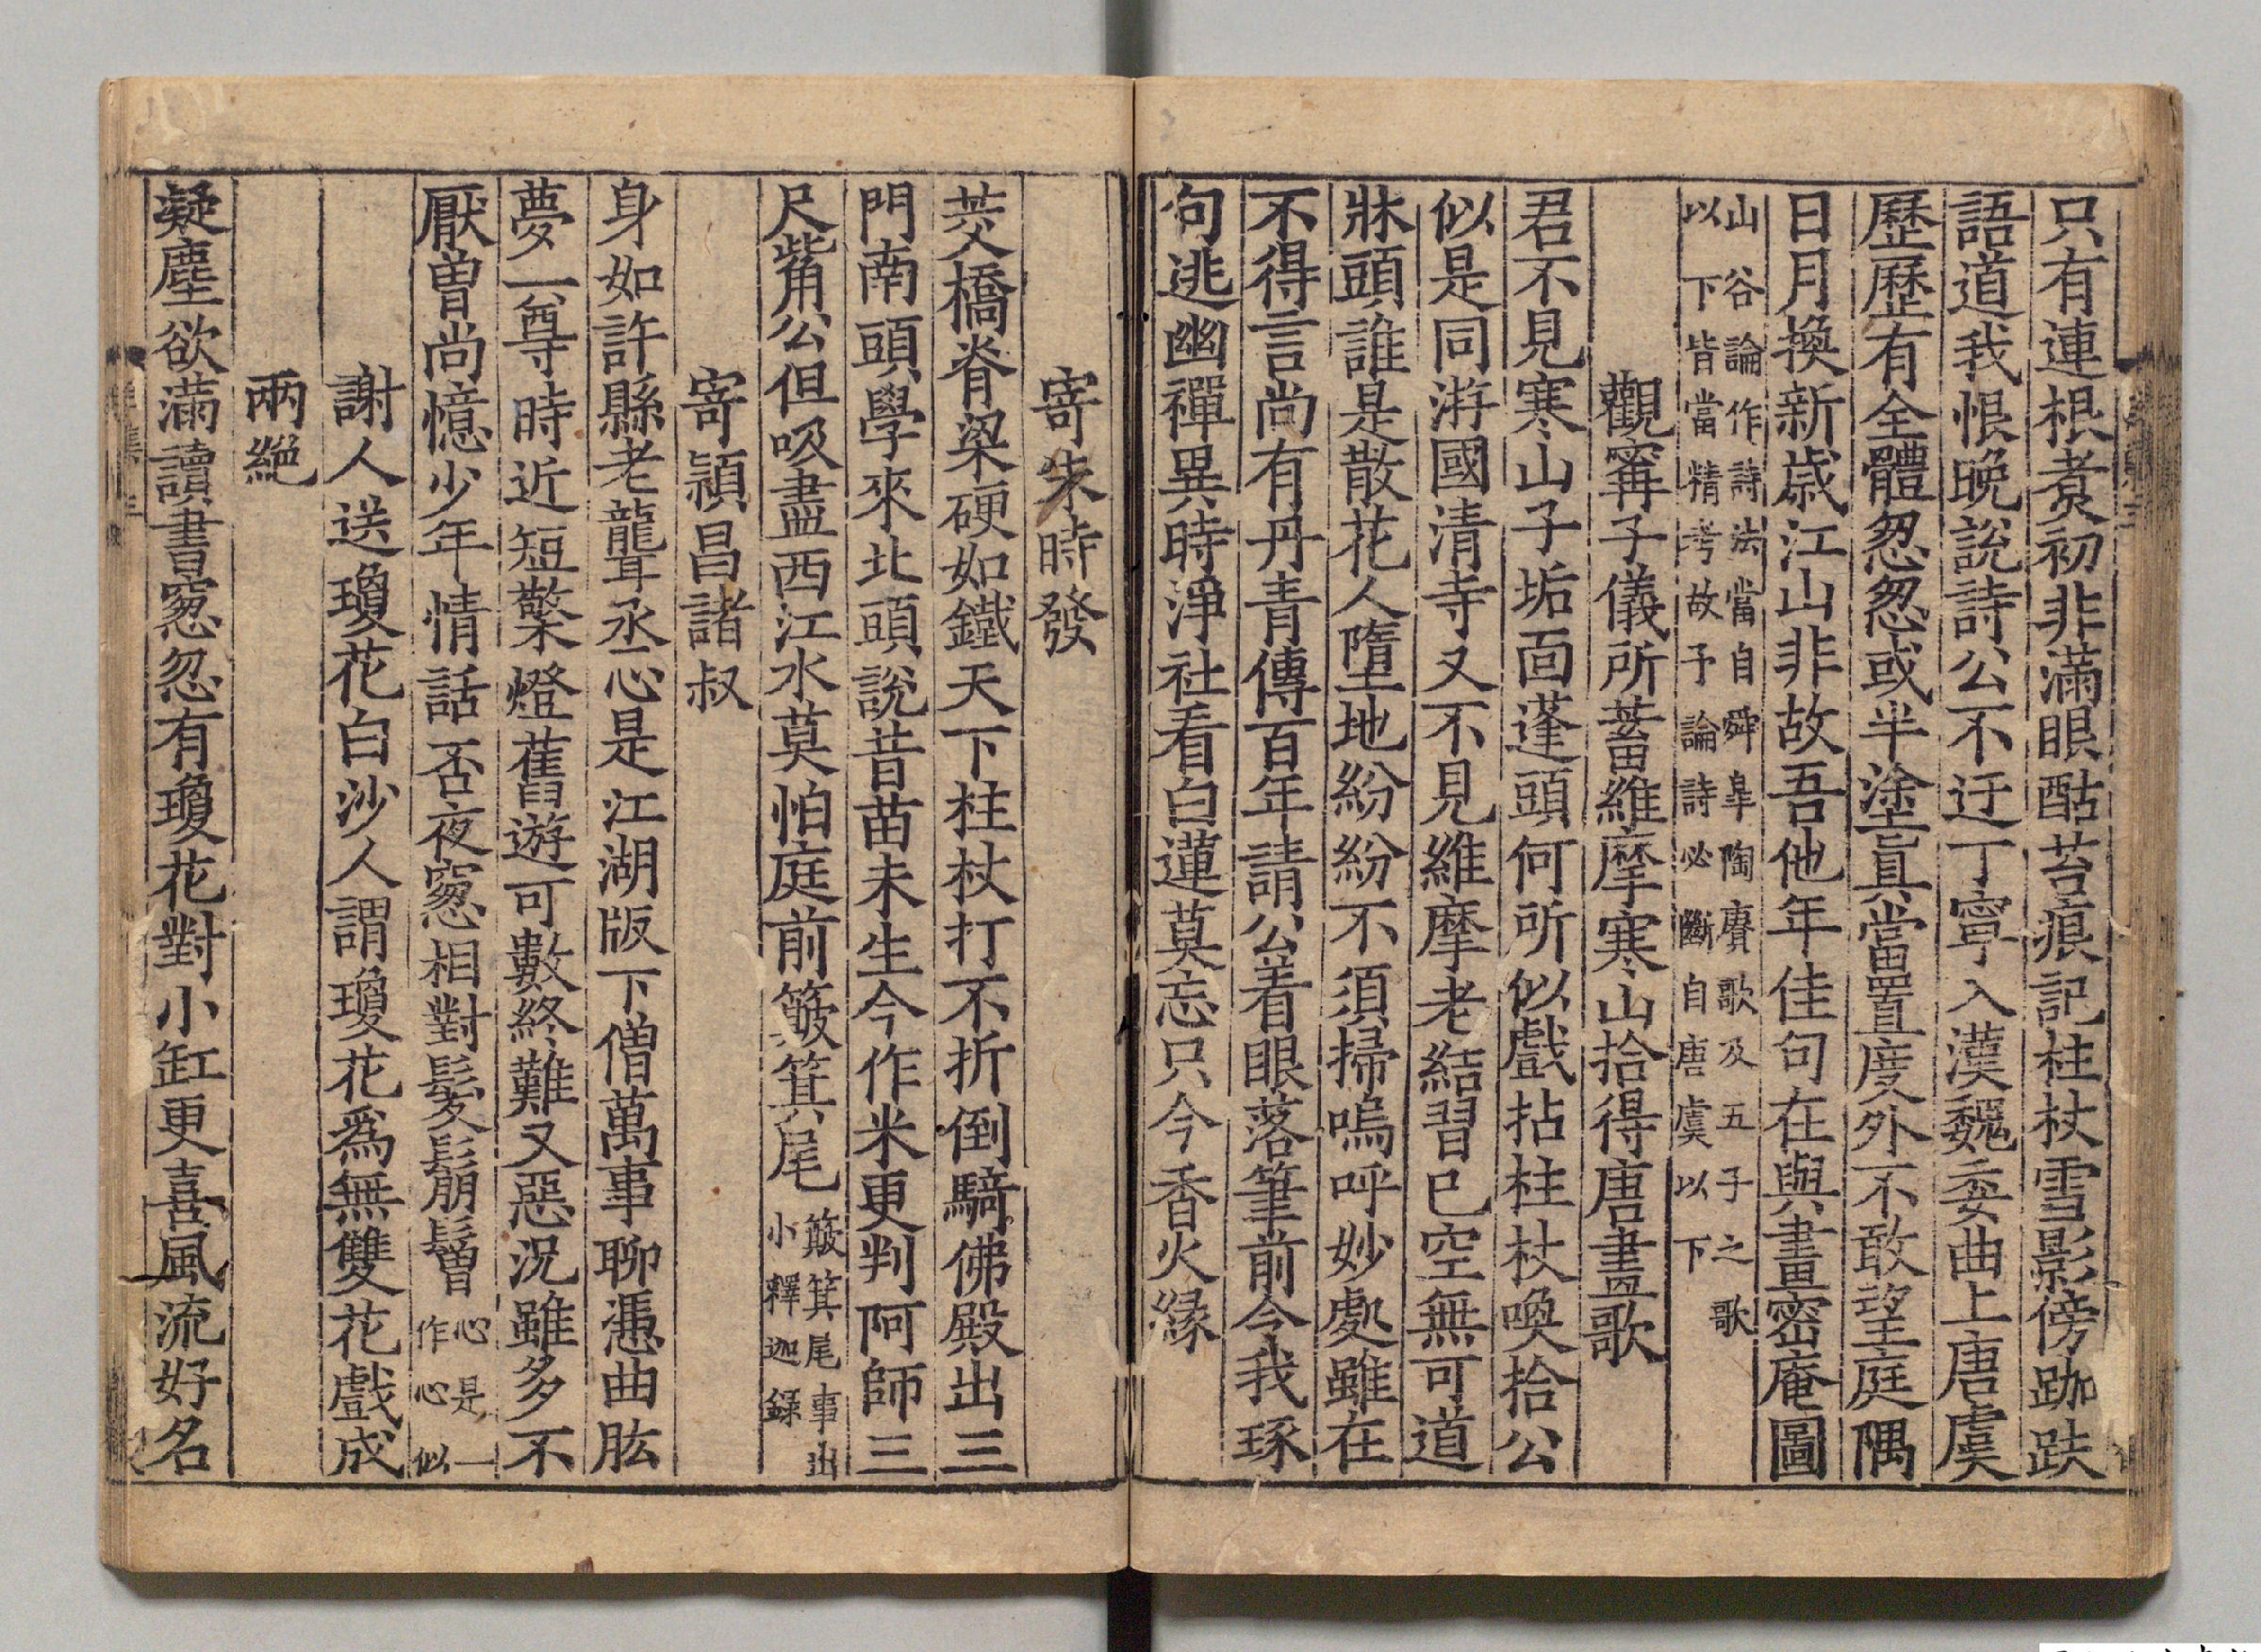 只有連根煮初非滿眼酤苔痕記柱杖雪影傍跏趺
語道我恨晚說詩公不迂丁寧入漢魏委曲上唐虞
歷歷有全體怱怱或半塗直當置度外不敢望庭隅
日月換新歲江山非故吾他年佳句在與畫密庵圖
山谷論作詩法當自舜皐陶賡歌及五子之歌
以下皆當精考故予論詩必斷自唐虞以下
觀甯子儀所蓄維摩寒山拾得唐畫歌
君不見寒山子垢面蓬頭何所似戲拈柱杖喚拾公
似是同游國清寺又不見維摩老結習已空無可道
牀頭誰是散花人墮地紛紛不須掃嗚呼妙處雖在
不得言尚有丹青傳百年請公着眼落筆前令我琢
句逃幽禪異時淨社看白蓮莫忘只今香火緣
寄朱時發
焚橋脊梁硬如鐵天下柱杖打不折倒騎佛殿出三
門南頭學來北頭說昔苗未生今作米更判阿師三
尺觜角公但吸盡西江水莫怕庭前簸箕尾
簸箕尾事出
小釋迦錄
寄潁昌諸叔
身如許縣老聾丞心是江湖版下僧萬事聊憑曲肱
夢一尊時近短檠燈舊遊可數終難又惡況雖多不
厭曾尚憶少年情話否夜窻相對髮鬅鬙
心是一
作心似
謝人送瓊花白沙人謂瓊花爲無雙花戲成
兩絕
凝塵欲滿讀書窻忽有瓊花對小缸更喜風流好名